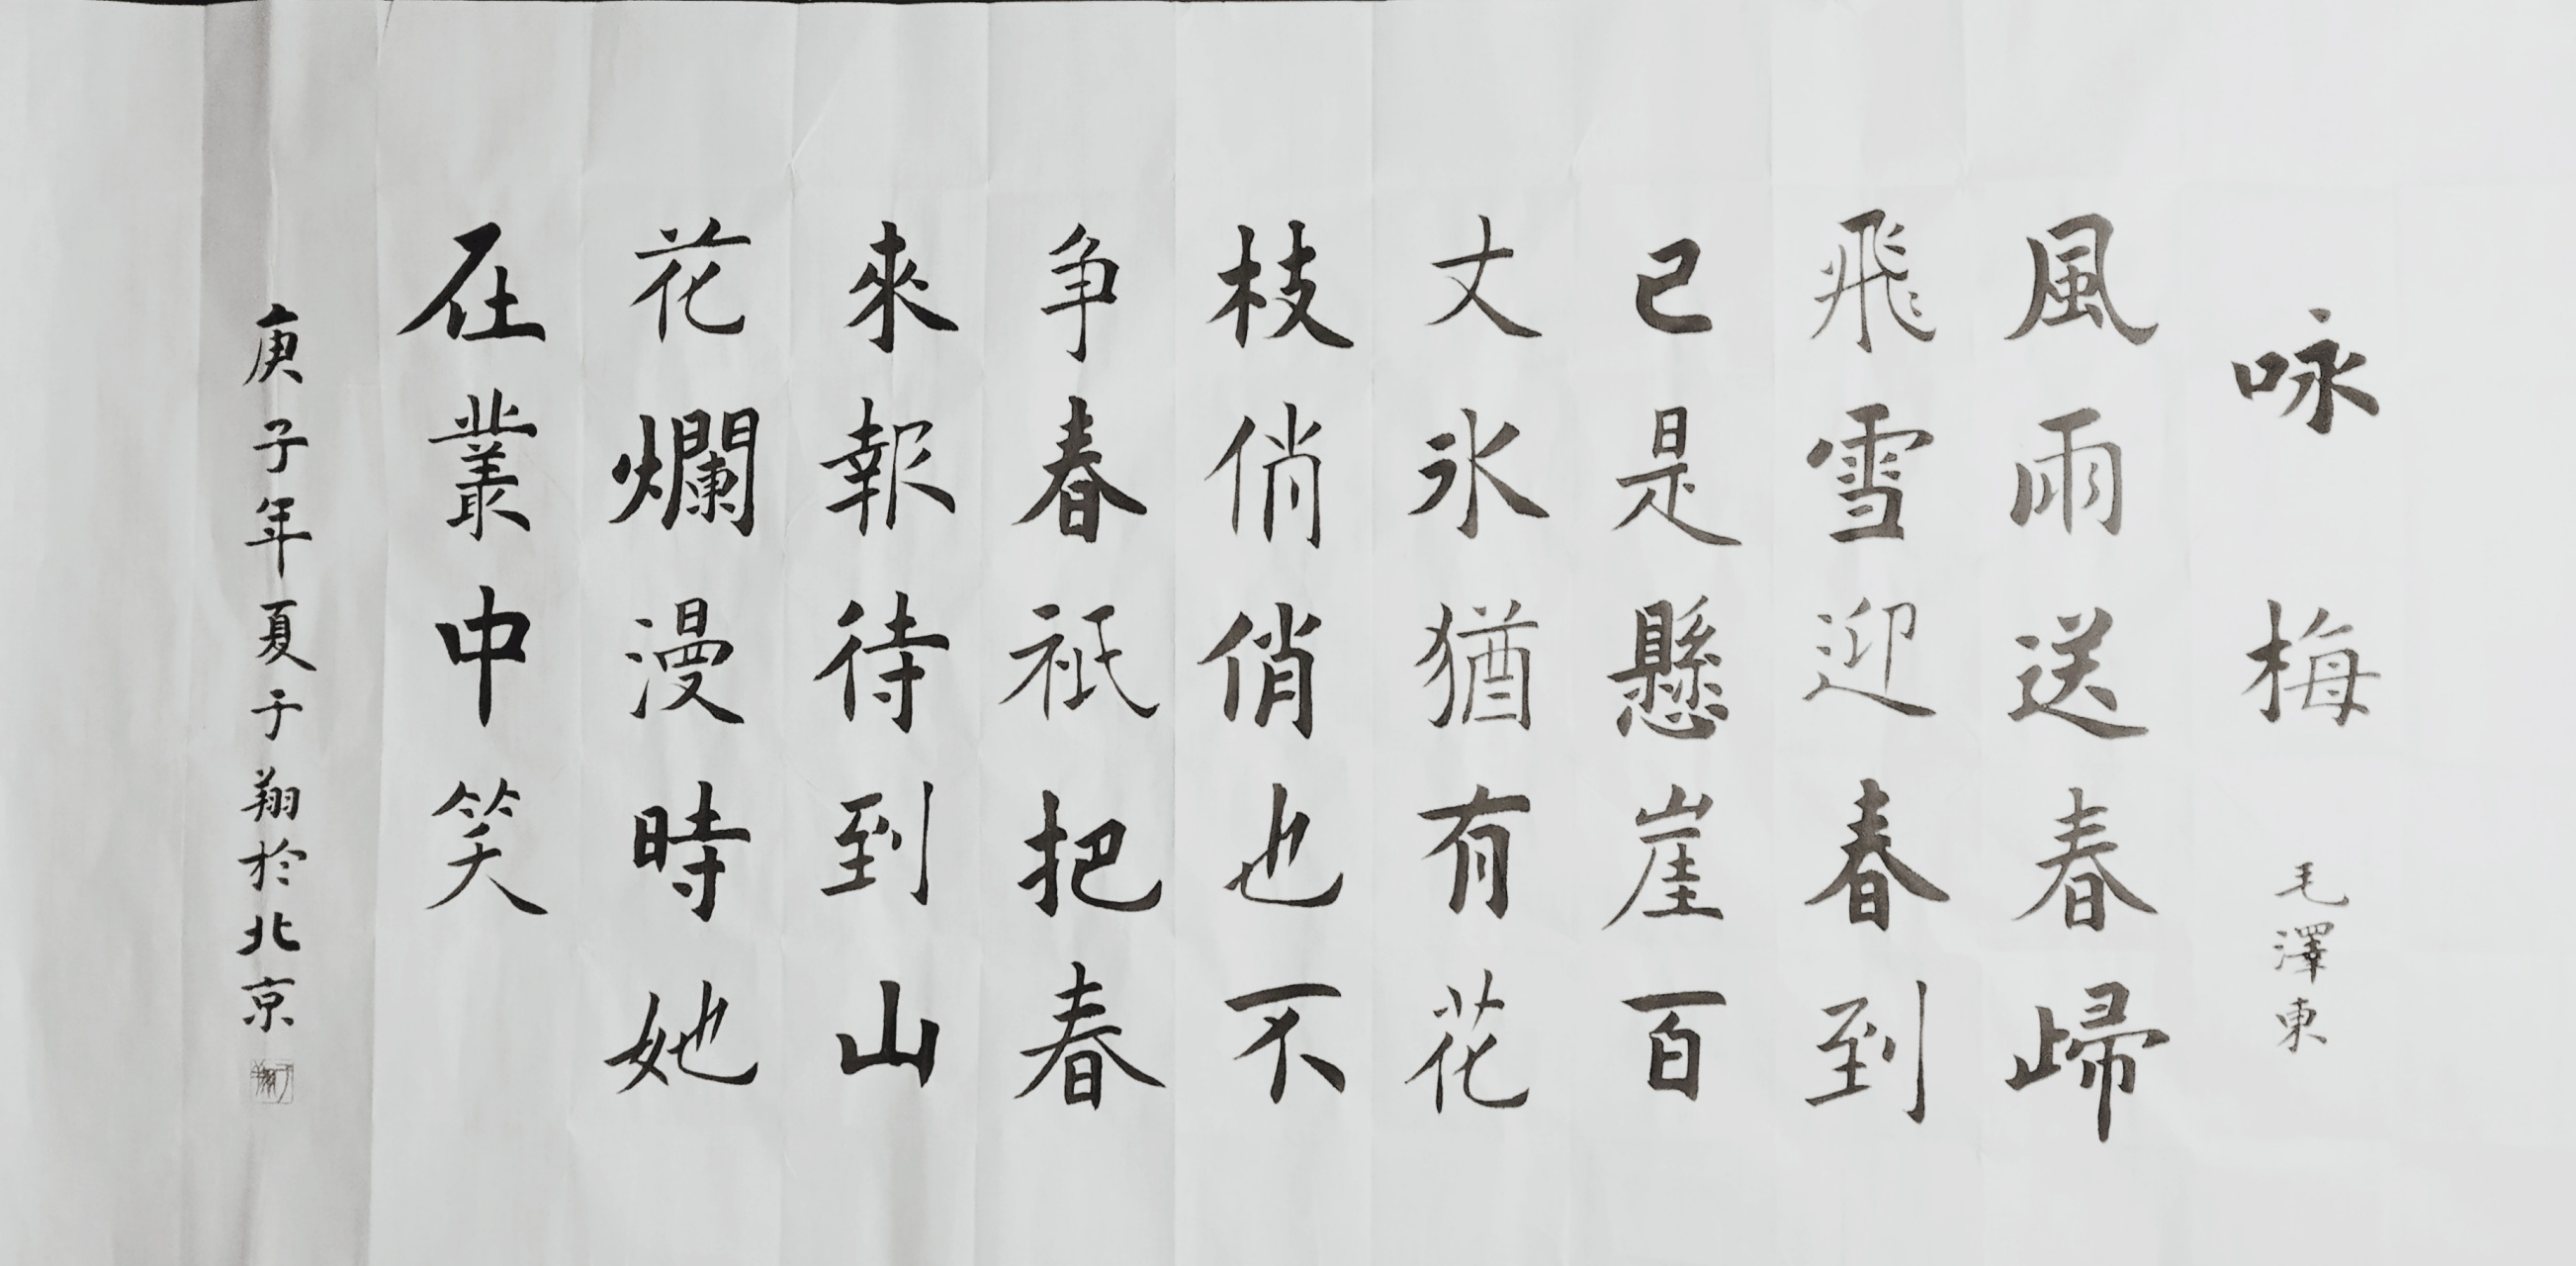 咏梅 毛澤東
風雨送春歸
飛雪迎春到
已是懸崖百
丈氷猶有花
枝俏俏也不
争春祇把春
來報待到山
花爛漫時她
在叢中笑
庚子年夏于翔於北京